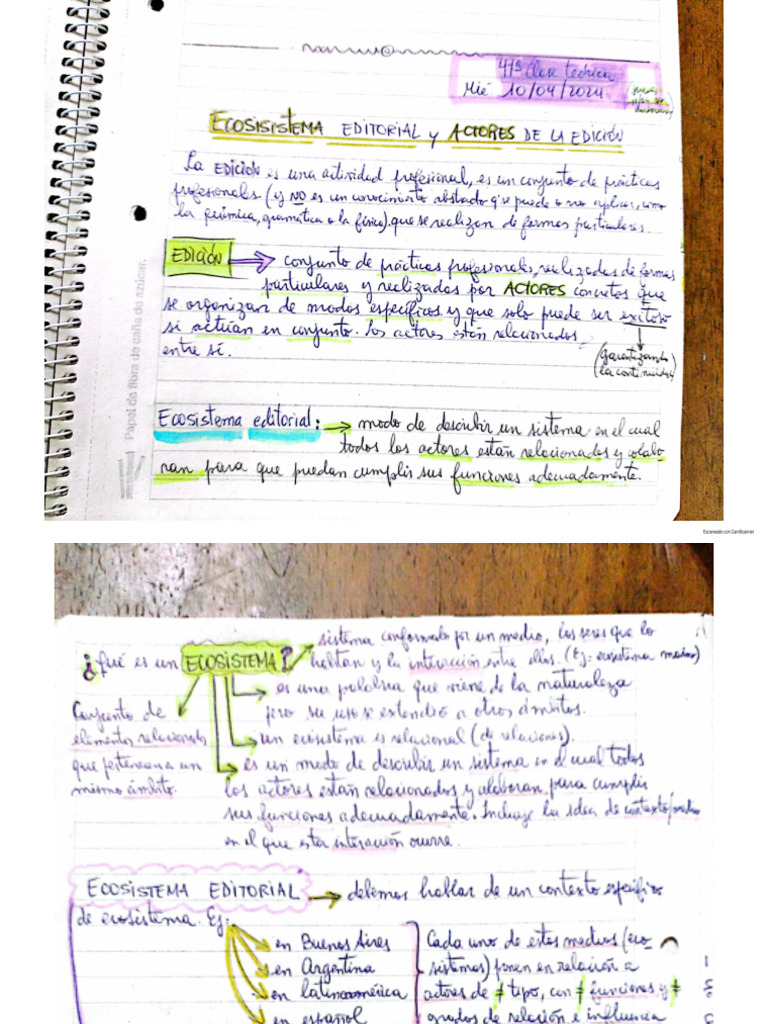 4/1ª Clase teórica
Mié 10/04/2024
ECOSISISTEMA EDITORIAL y ACTORES DE LA EDICIÓN
La EDICIÓN es una actividad profesional, es un conjunto de prácticas
profesionales (y NO es un conocimiento abstado q se puede o no aplicar, como
la química, gramática o la física). que se realizan de formas particulares.
EDICIÓN conjunto de prácticas profesionales, realizadas de formas
particulares y realizadas por ACTORES concretos que
se organizan de modos específicos y que solo puede ser exitoso
si actúan en conjunto. Los actores están relacionados
entre sí.
(garantizando
la continuidad)
Ecosistema editorial: modo de describir un sistema en el cual
todos los actores están relacionados y colabo
ran para que puedan cumplir sus funciones adecuadamente.
Papel de fibra de caña de azúcar.
Escaneado con CamScanner
sistema conformado por un medio, los seres que lo
¿Qué es un ECOSISTEMA? habitan y la interacción entre ellos. (Ej: ecosistema marino)
es una palabra que viene de la naturaleza
pero su uso se extendió a otros ámbitos.
un ecosistema es relacional (de relaciones).
Conjunto de
elementos relacionados
que pertenecen a un
mismo ámbito.
es un modo de describir un sistema en el cual todos
los actores están relacionados y colaboran para cumplir
sus funciones adecuadamente. Incluye la idea de contexto/medio
en el que esta interacción ocurre.
ECOSISTEMA EDITORIAL debemos hablar de un contexto específico
de ecosistema. Ej:
en Buenos Aires
en Argentina
en latinoamérica
en español
Cada uno de estos medios (eco-
sistemas) ponen en relación a
actores de ≠ tipo, con ≠ funciones y ≠
grados de relación e influencia